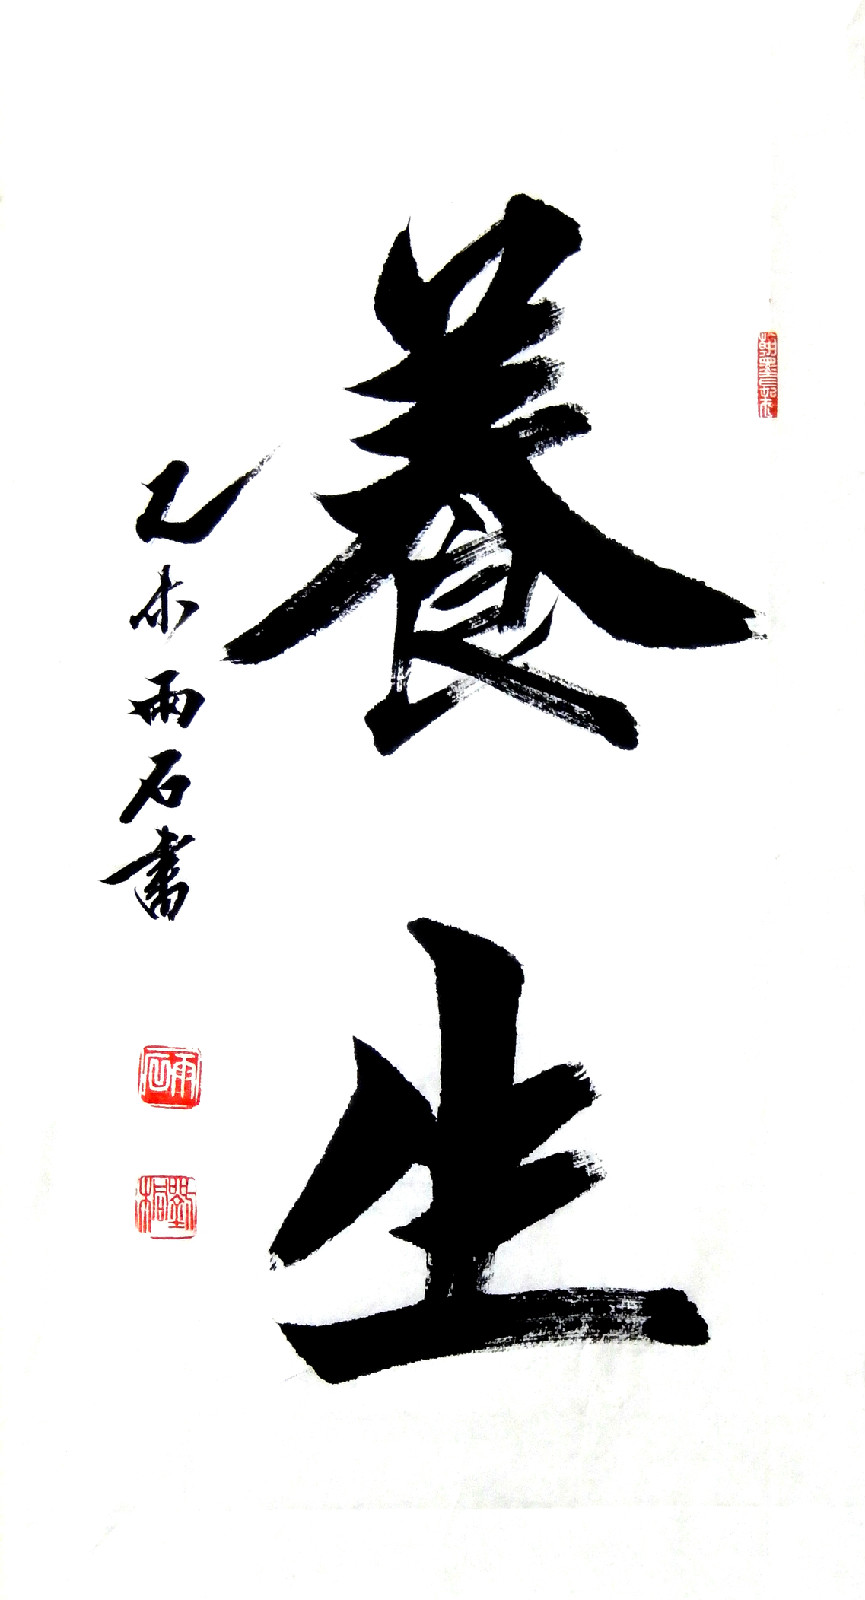 養生
乙未雨石書
雨石